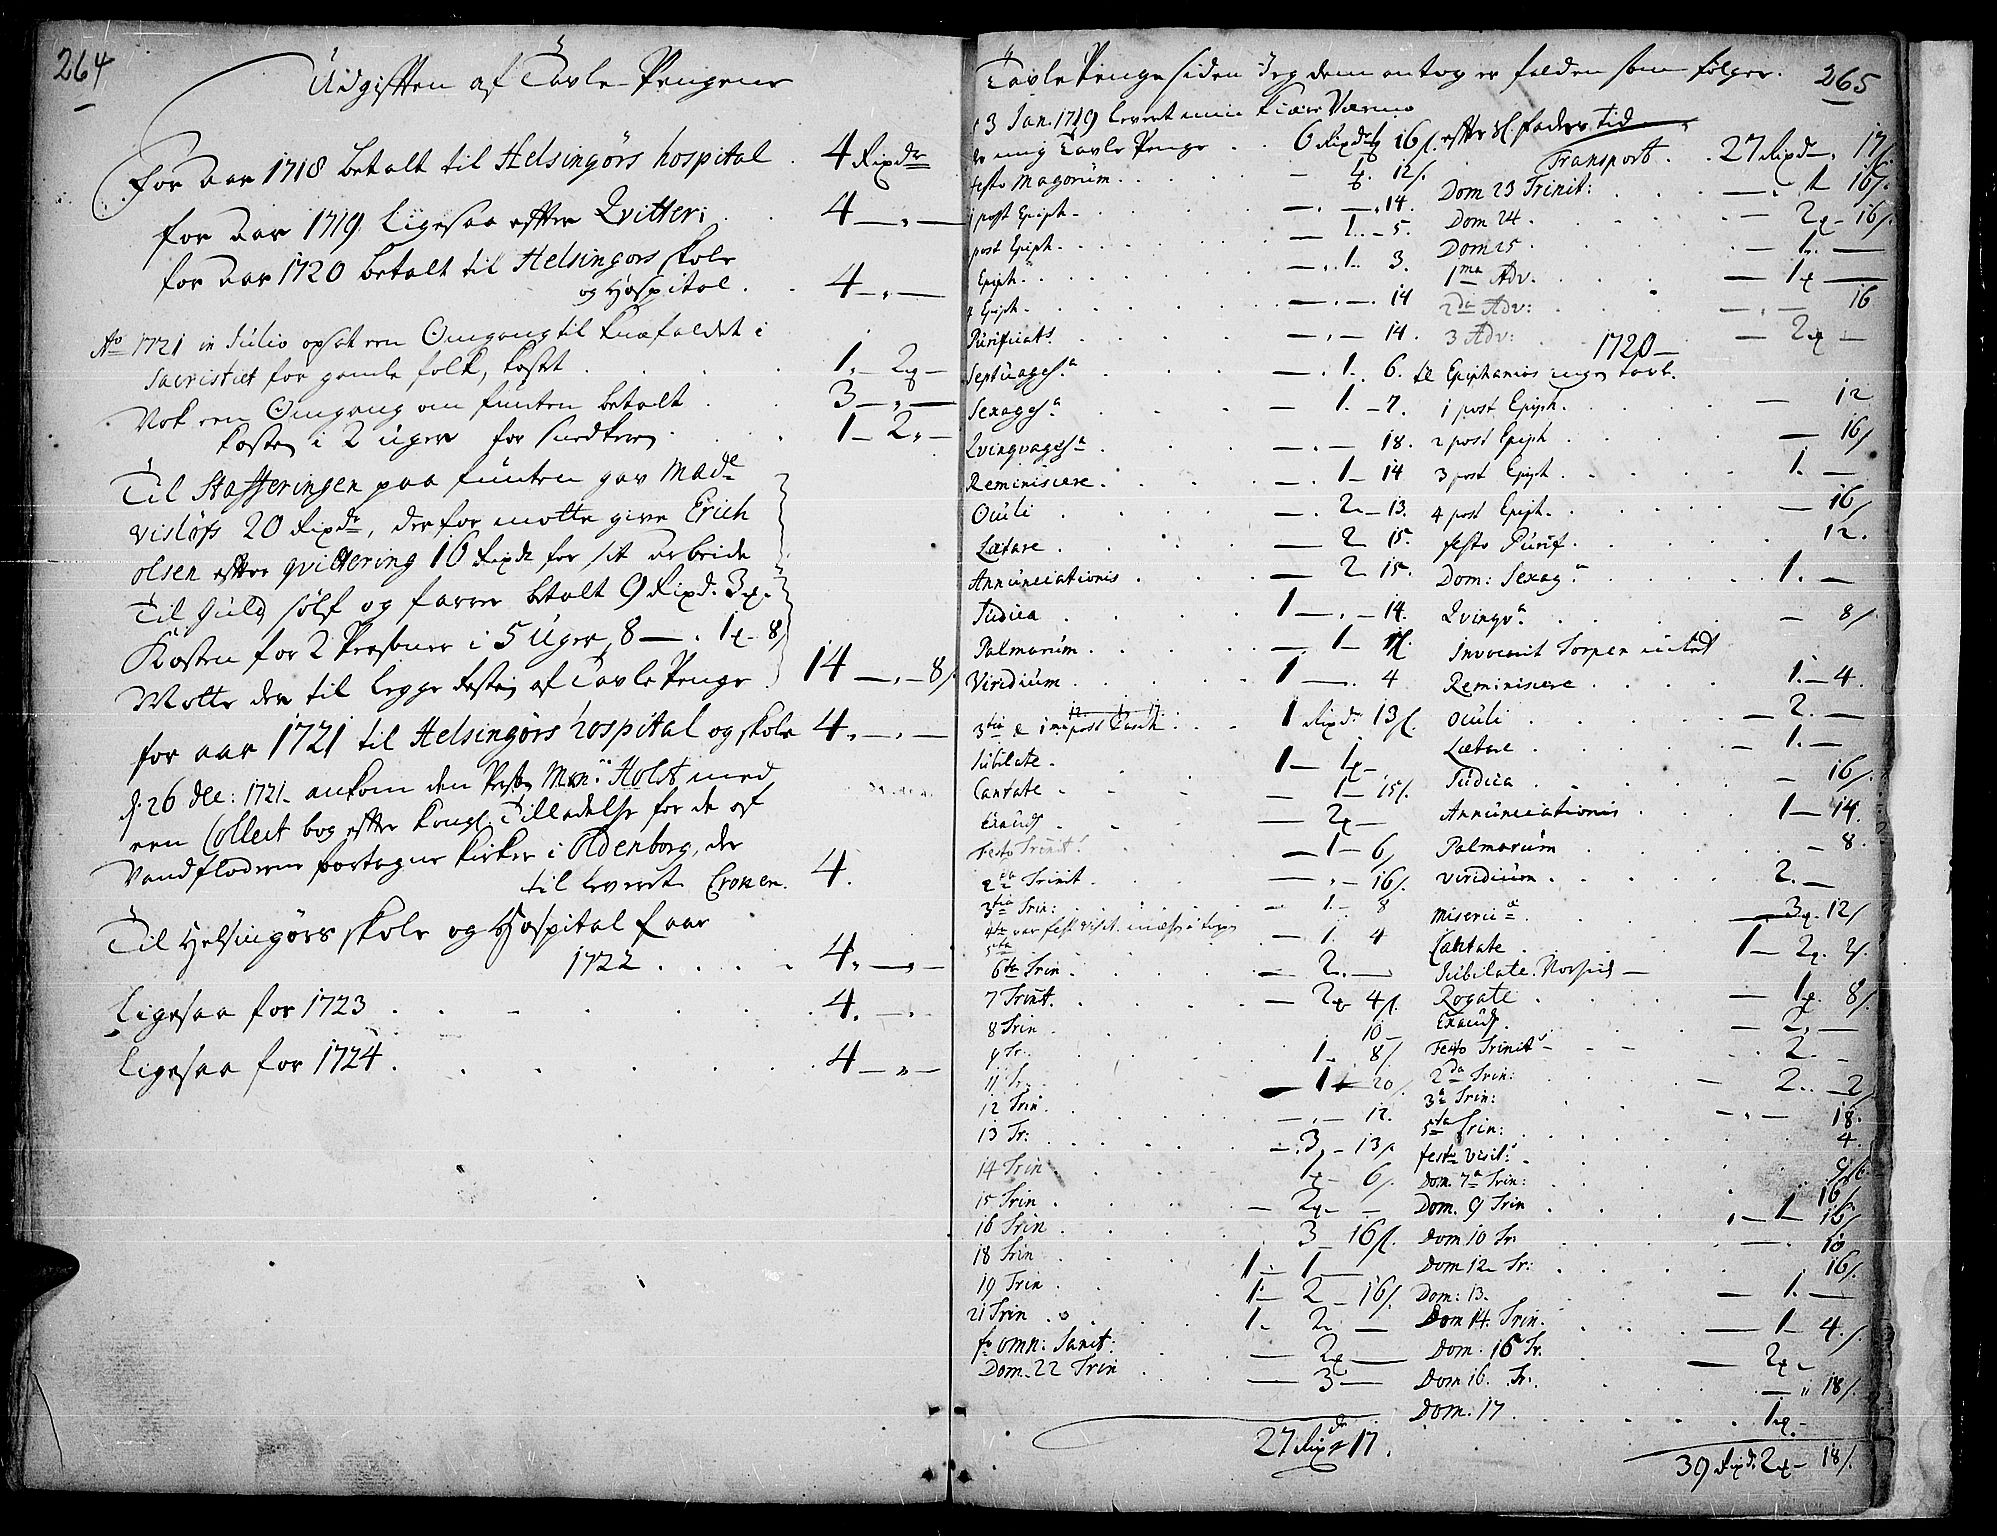 264
Udgifften af Tavle-Pengene
For aar 1718 betalt til Helsingørs hospital . 4 Rixdr
for aar 1719 Ligesaa efter Qvitter: . . 4 — " —
for aar 1720 betalt til Helsingørs skole
og Hospital . . 4 — " —
Ao 1721 in Julio opsat een Omgang til Knæfaldet i
Sacristiet for gamle folk, kostet . . . 1. — 2 —
Nok een Omgang om funten betalt . . 3 — " —
Kosten i 2 uger for snedkeren . . . 1 — 2 " —
Til Stafferingen paa funten gav Made
visløfs 20 Rixdr, derfor motte give Erich
olsen efter qvittering 16 Rixdr for sit arbeide
Til Guld, sølf og farver betalt 9 Rixd. 3
Kosten for 2 Personer i 5 Uger, 8 — . 1 - 8
Motte der til legge Resten af Tavle Penge . 14 — . — 8
for aar 1721 til Helsingørs hospital og skole 4. — . —
d. 26 Dec: 1721 ankom den Holst med
een Collect bog efter Kongl. Tilladelse for de af
Vandflodene bortagne Kirker i Oldenborg, der
til leveret Cronen. 4.
Til Helsingørs skole og Hospital f aar
1722 . . . . 4. — " —
Ligesaa for 1723 . . . . 4. — .
Ligesaa for 1724 . . . . 4 — " —
265
Tavle Penge siden Jeg dem antog er falden som følger.
3 Jan. 1719 leveret min
mig Tavle Penge . . 6 Rixdr 16 efter Sl. faders tid
festo Magorum . . . — 12
1 post Epiph. . . . — . — . 14
post Epiph. . . . — 1. — 5.
Epiph . . . — . 1. 3.
4 Epiph. . . . — . — . 14
Purificats . . . — . — 14.
Septuages.a . . . — . 1. 6.
Sexages.a . . . — 1. — 7.
Qvinqvages.a . . . — . — 18.
Reminiscere . . . — . 1 — 14
Oculi . . . — . 2. — 13.
Lætare . . . — 2 15.
Annunciationis . . . — 2. 15.
Judica . . . 1 — . — 14.
Palmarum . . . — 1 —
Viridium . . . 1 — . 4
3tia & 1ma post Pasch . . . 1 Rixdr 13
Jubilate . . . 1 — 1 —
Cantate . . . — 1 — 15
Exaudi . . . — 2 —
Festo Trinit: . . . — 1 — 6
2da Trinit. . . . — " — 16
3tia Trin: . . . — 1 — 8
4ta var fest. visit.
5ta . . . — 1. 4
6ta Trin . . . — 2. —
7 Trinit. . . . — 2 4
8 Trin . . . 10 —
9 Tr. . . . 1. 8
11 Tr. . . . — 1 20
12 Trin. . . . — . — 12.
13 Tr: . . . — . 3. — 13
14 Trin . . . 1 — 6
15 Trin . . . — 2 — —
16 Trin . . . 3 — 16
18 Trin . . . 1 — 1 —
19 Trin . . . 1 — 2 — 16
21 Trin . . . 1 — 2 — —
fo omn: Sanct: . . . — 2 —
Dom. 22 Trin . . . — 3 —
27 Rixdr 17.
Transport . . 27 Rixd — . 17
Dom 23 Trinit: . . . — . 1 16
Dom 24 . . . — 2 — 16
Dom 25 . . . — 1. —
1ma Adv. . . . — 1 —
2da Adv: . . . — . — 16
3 Adv: . . . — 2 —
1720 —
til Epiphanias ingen tavle
1 post Epiph. . . . — 12
2 post Epiph . . . — 16
3 post Epiph. . . . 1. —
4 post Epiph. . . . — 16
festo Purif. . . . 12.
Dom: Sexag.a . . . 1. —
Qvinqv.a . . . — 8
Invocavit Torpen
Reminiscere . . . 1. — 4.
Oculi . . . — 2. —
Lætare . . . — 1. —
Judica . . . — 16
Annunciationis . . . 1 — 14.
Palmarum . . . — 8.
Viridium . . . 2. —
Miseric.æ . . . — 3. 12
Cantate . . . 1 — 2. 2
Jubilate —
Rogate . . . — 1. 8
Exaudi . . . — 2. —
Festo Trinit . . . 2. —
2da Trin: . . . — 2. — 2
3a Trin: . . . — . — 18.
5ta Trin: . . . 4.
festo visit: . . .
Dom. 7a Trin: . . . 16
Dom. 9 Trin . . . — 1 16
Dom 10 Tr. . . . — . 10
Dom 12 Tr: . . . 16
Dom: 13. . . . — 1. —
Dom 14. Trin. . . . — 1 — 4.
Dom. 15 Tr. . . . — 2 —
Dom 16. Tr. . . . — " 18
Dom. 17 . . . 1 —
39 Rixd. 2 — 18